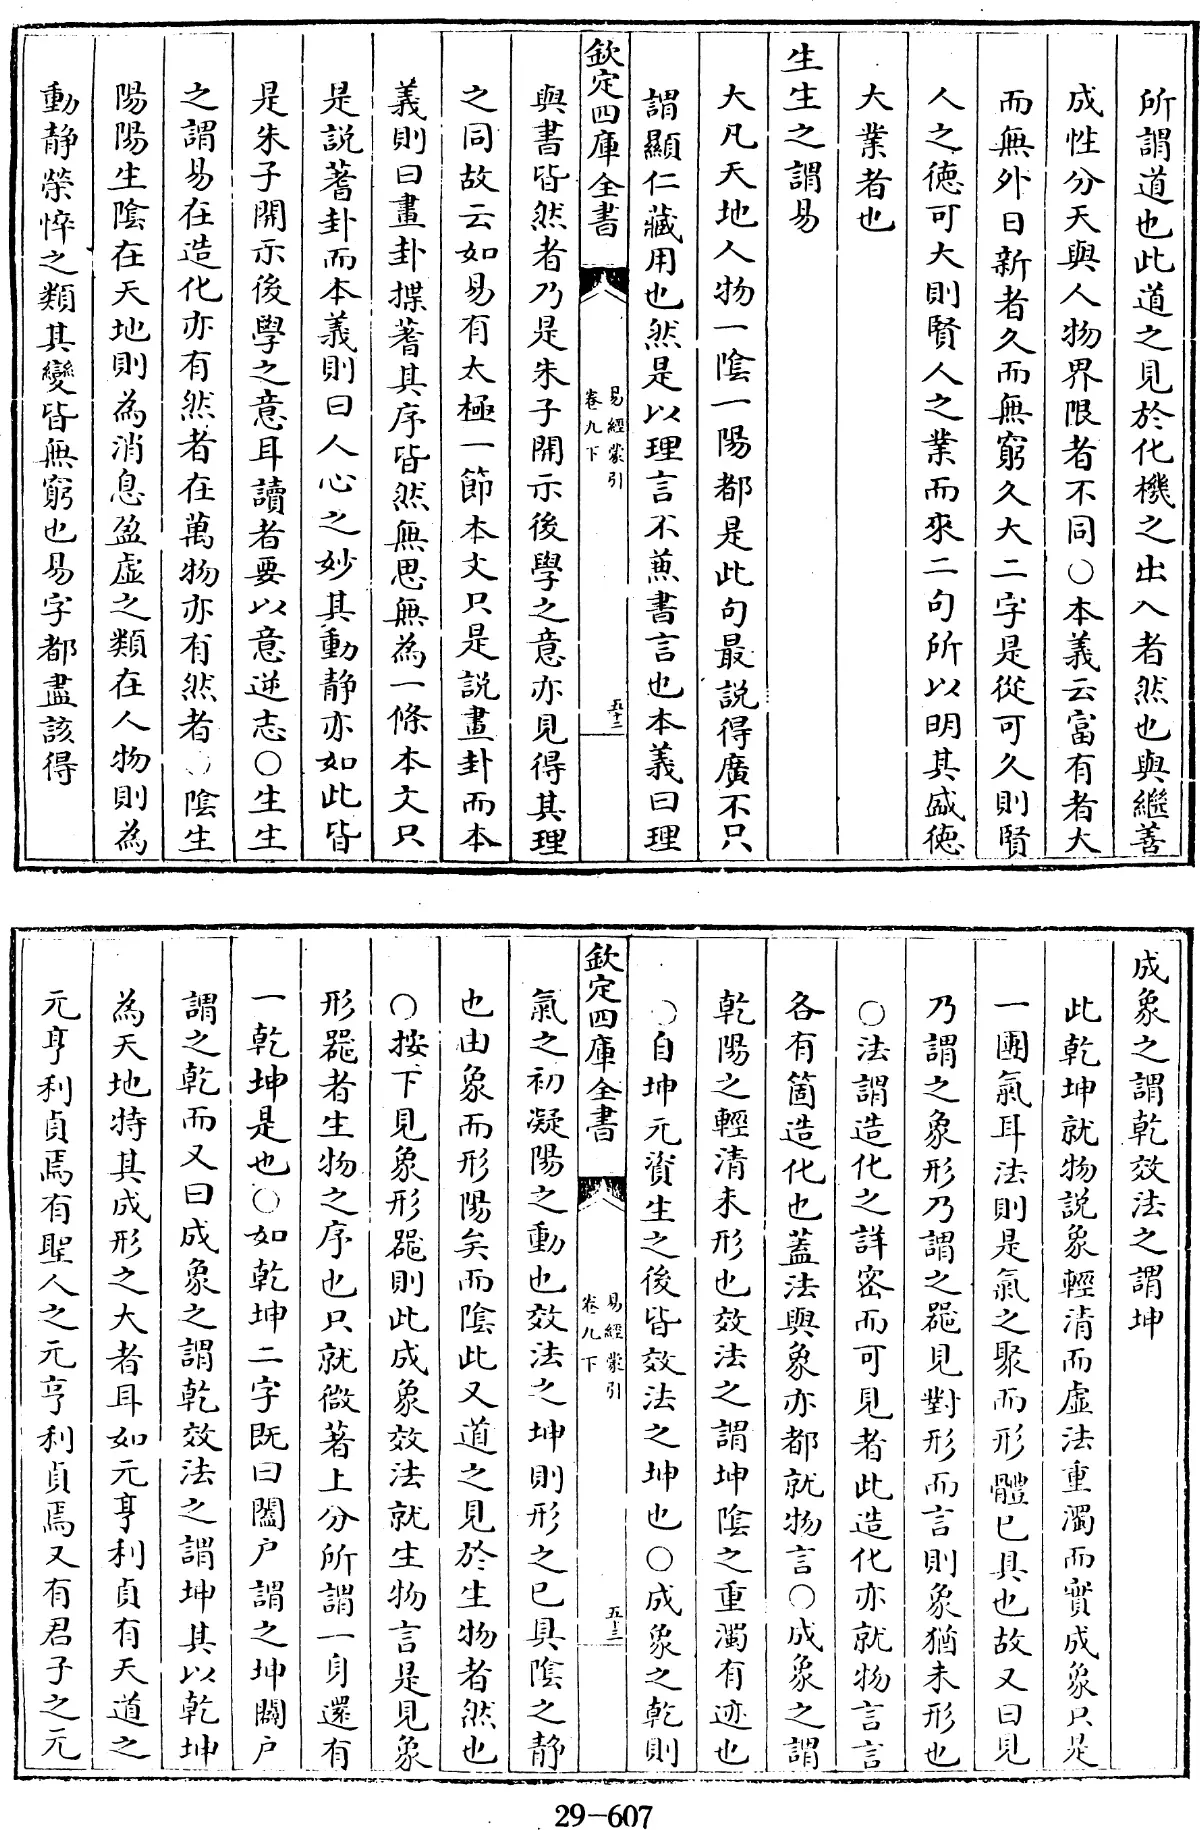 所謂道也此道之見於化機之出入者然也與繼善
成性分天與人物界限者不同○本義云富有者大
而無外日新者久而無窮久大二字是從可久則賢
人之德可大則賢人之業而來二句所以明其盛德
大業者也
生生之謂易
大凡天地人物一陰一陽都是此句最説得廣不只
謂顯仁藏用也然是以理言不兼書言也本義曰理
欽定四庫全書
易經蒙引
卷九下
五十二
與書皆然者乃是朱子開示後學之意亦見得其理
之同故云如易有太極一節本文只是説畫卦而本
義則曰畫卦揲蓍其序皆然無思無為一條本文只
是説蓍卦而本義則曰人心之妙其動静亦如此皆
是朱子開示後學之意耳讀者要以意逆志○生生
之謂易在造化亦有然者在萬物亦有然者○陰生
陽陽生陰在天地則為消息盈虛之類在人物則為
動静榮悴之類其變皆無窮也易字都盡該得
成象之謂乾效法之謂坤
此乾坤就物説象輕清而虛法重濁而實成象只是
一團氣耳法則是氣之聚而形體已具也故又曰見
乃謂之象形乃謂之器見對形而言則象猶未形也
○法謂造化之詳密而可見者此造化亦就物言言
各有箇造化也蓋法與象亦都就物言○成象之謂
乾陽之輕清未形也效法之謂坤陰之重濁有迹也
○自坤元資生之後皆效法之坤也○成象之乾則
欽定四庫全書
易經蒙引
卷九下
五十三
氣之初凝陽之動也效法之坤則形之已具陰之静
也由象而形陽矣而陰此又道之見於生物者然也
○按下見象形器則此成象效法就生物言是見象
形器者生物之序也只就微著上分所謂一身還有
一乾坤是也○如乾坤二字既曰闔户謂之坤闢户
謂之乾而又曰成象之謂乾效法之謂坤其以乾坤
為天地特其成形之大者耳如元亨利貞有天道之
元亨利貞焉有聖人之元亨利貞焉又有君子之元
29-607